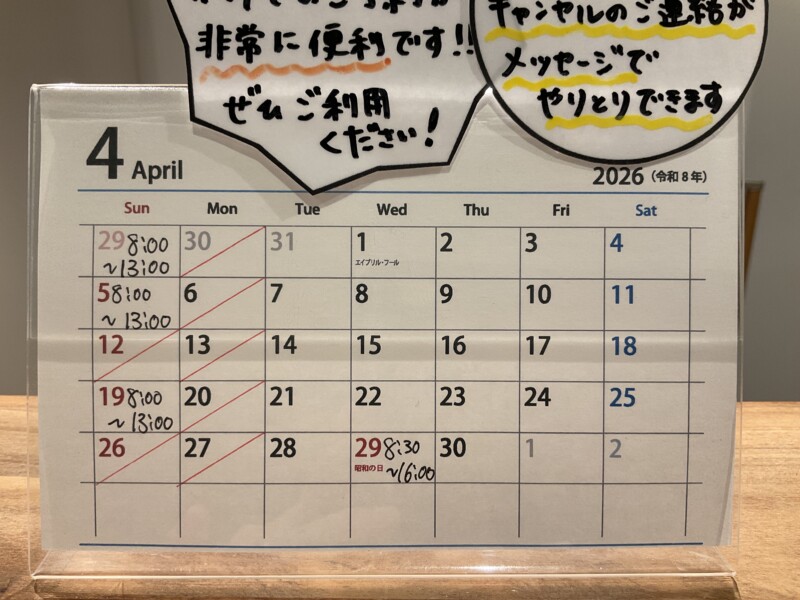 非常に便利です!!
ぜひご利用
ください!
キャンセルのご連絡が
メッセージで
やりとりできます
4 April
2026 (令和8年)
Sun Mon Tue Wed Thu Fri Sat
29 8:00 ~13:00 30 31 1 エイプリル・フール 2 3 4
5 8:00 ~13:00 6 7 8 9 10 11
12 13 14 15 16 17 18
19 8:00 ~13:00 20 21 22 23 24 25
26 27 28 29 昭和の日 8:30 ~16:00 30 1 2